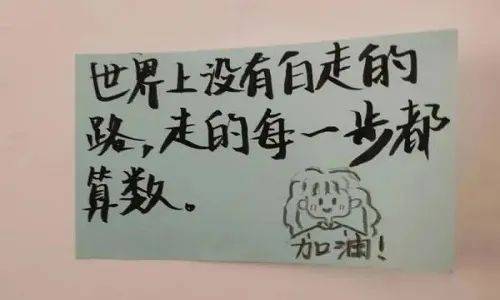 世界上没有白走的
路,走的每一步都
算数。
加油!